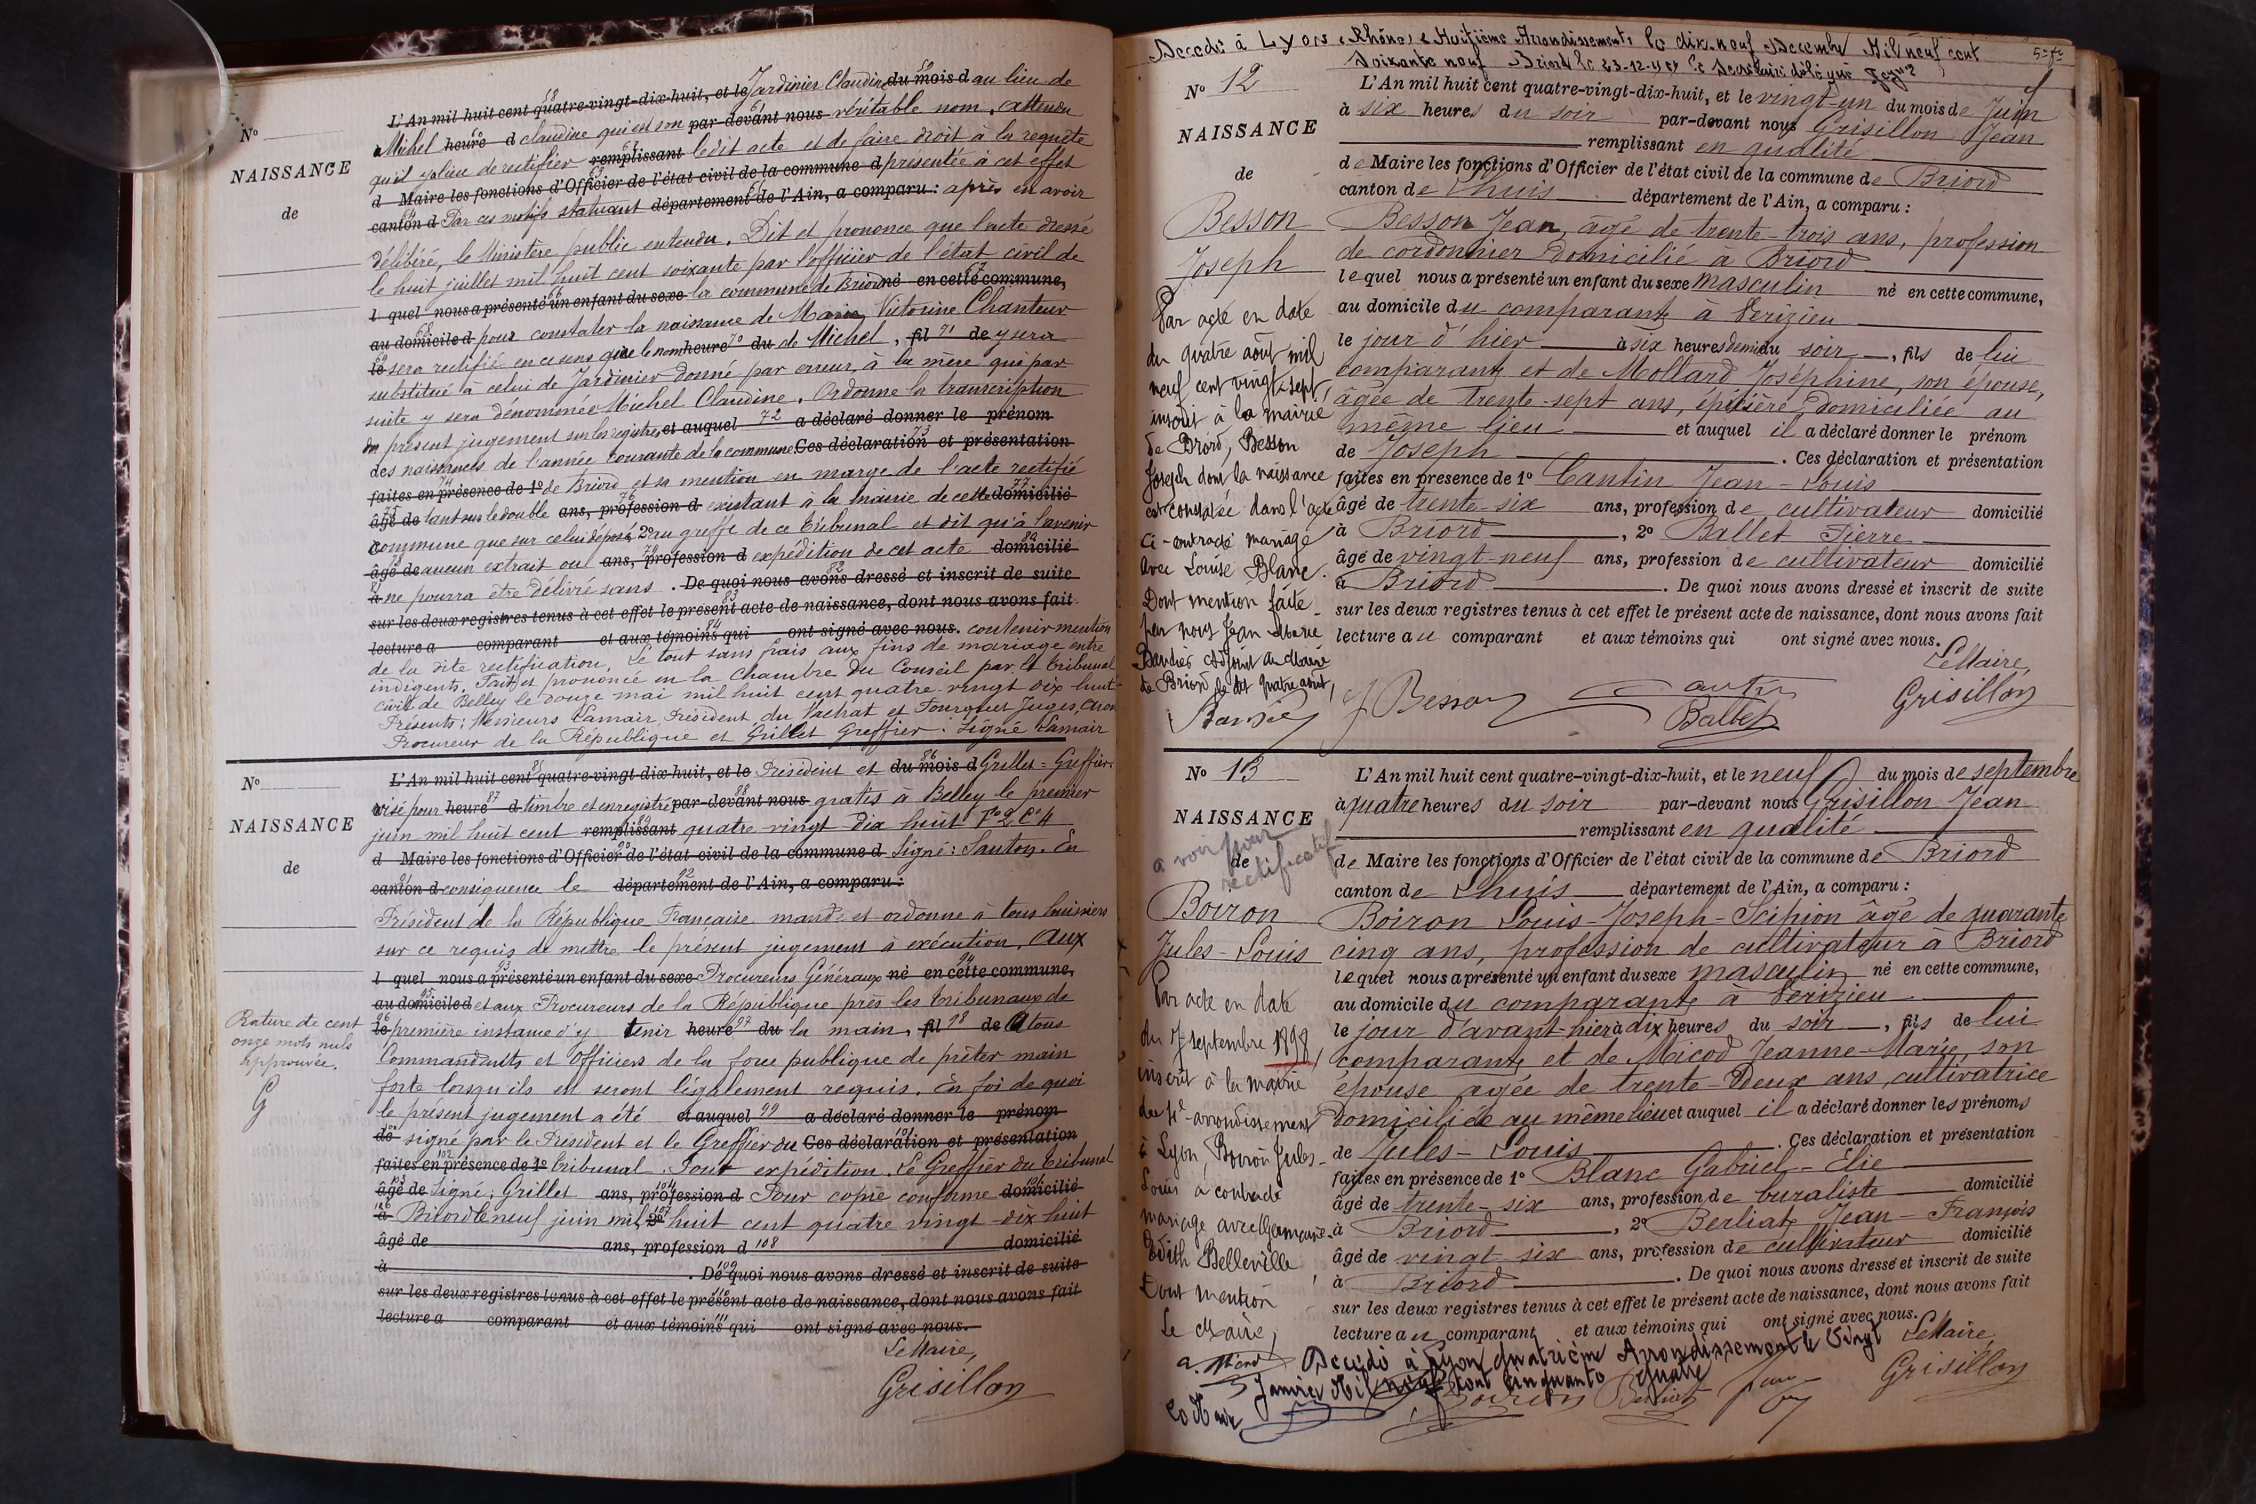 N°
NAISSANCE
de
L'An mil huit cent quatre-vingt-dix-huit, et le Jardinier Claudine du mois d au lieu de
Michel heure d Claudine qui est son par-devant nous véritable nom, attendu
qu'il y a lieu de rectifier remplissant ledit acte et de faire droit à la requête
d Maire les fonctions d'Officier de l'état civil de la commune d présentée à cet effet
canton d Par ces motifs statuant département de l'Ain, a comparu : après en avoir
délibéré, le Ministère public entendu. Dit et prononce que l'acte dressé
le huit juillet mil huit cent soixante par l'officier de l'état civil de
l quel nous a présenté un enfant du sexe la commune de Briord né en cette commune,
au domicile d pour constater la naissance de Marie Victorine Chanteur
le sera rectifié en ce sens que le nom heure du de Michel, fil de y sera
substitué à celui de Jardinier donné par erreur, à la mère qui par
suite y sera dénommée Michel Claudine. Ordonne la transcription
du présent jugement sur les registres et auquel 72 a déclaré donner le prénom
des naissances de l'année courante de la commune Ces déclaration et présentation
faites en présence de 1° de Briord et sa mention en marge de l'acte rectifié
âgé de tant sur le double ans, profession d existant à la mairie de cette domicilié
commune que sur celui déposé 2° au greffe de ce tribunal et dit qu'à l'avenir
âgé de aucun extrait ou ans, profession d expédition de cet acte domicilié
à ne pourra être délivré sans . De quoi nous avons dressé et inscrit de suite
sur les deux registres tenus à cet effet le présent acte de naissance, dont nous avons fait
lecture a comparant et aux témoins qui ont signé avec nous. contenir mention
de la dite rectification. Le tout sans frais aux fins de mariage entre
indigents. Fait et prononcé en la Chambre du Conseil par le tribunal
civil de Belley le douze mai mil huit cent quatre-vingt dix huit
Présents : Messieurs Lamair Président, du Vachat et Fourquet Juges,
Procureur de la République et Grillet Greffier. Signé Lamair
N°
NAISSANCE
de
L'An mil huit cent quatre-vingt-dix-huit, et le Président et du mois d Grillet = Greffier.
visé pour heure 87 d timbre et enregistré par-devant nous gratis à Belley le premier
juin mil huit cent remplissant quatre-vingt dix huit F° 2 C° 4
d Maire les fonctions d'Officier de l'état civil de la commune d Signé : Santon. En
canton d conséquence le département de l'Ain, a comparu :
Président de la République Française mande et ordonne à tous huissiers
sur ce requis de mettre le présent jugement à exécution, aux
l quel nous a présenté un enfant du sexe Procureurs Généraux né en cette commune,
au domicile d et aux Procureurs de la République près les tribunaux de
le première instance d'y tenir heure 97 du la main, fil 98 de à tous
Commandants et Officiers de la force publique de prêter main
forte lorsqu'ils en seront légalement requis. En foi de quoi
le présent jugement a été et auquel 99 a déclaré donner le prénom
de signé par le Président et le Greffier du Ces déclaration et présentation
faites en présence de 1° tribunal. Pour expédition. Le Greffier du tribunal
âgé de Signé : Grillet ans, profession d Pour copie conforme domicilié
à Briord le neuf juin mil 2° huit cent quatre vingt dix huit
âgé de ans, profession d 108 domicilié
à . De quoi nous avons dressé et inscrit de suite
sur les deux registres tenus à cet effet le présent acte de naissance, dont nous avons fait
lecture a comparant et aux témoins qui ont signé avec nous.
Le Maire,
Grisillon
Rature de cent
onze mots nuls
approuvée.
G
Décédé à Lyon (Rhône) Huitième Arrondissement, le dix-neuf Décembre Mil neuf cent
Soixante neuf Briord le 23-12-1969 le Secrétaire délégué
N° 12
NAISSANCE
de
Besson
Joseph
Par acte en date
du quatre août mil
neuf cent vingt-sept,
inscrit à la mairie
de Briord, Besson
Joseph dont la naissance
est constatée dans l'acte
ci-contracté mariage
avec Louise Blanc.
Dont mention faite
par nous Jean Marie
Adjoint au Maire
de Briord le dit quatre août,
L'An mil huit cent quatre-vingt-dix-huit, et le vingt-un du mois de Juin
à six heures du soir par-devant nous Grisillon Jean
remplissant en qualité
de Maire les fonctions d'Officier de l'état civil de la commune de Briord
canton de Lhuis département de l'Ain, a comparu :
Besson Jean, âgé de trente-trois ans, profession
de cordonnier domicilié à Briord
lequel nous a présenté un enfant du sexe masculin né en cette commune,
au domicile du comparant à Verizieu
le jour d'hier à six heures demi du soir, fils de lui
comparant et de Mollard Joséphine, son épouse,
âgée de trente-sept ans, épicière, domiciliée au
même lieu et auquel il a déclaré donner le prénom
de Joseph . Ces déclaration et présentation
faites en présence de 1° Cantin Jean-Louis
âgé de trente six ans, profession de cultivateur domicilié
à Briord , 2° Ballet Pierre
âgé de vingt-neuf ans, profession de cultivateur domicilié
à Briord . De quoi nous avons dressé et inscrit de suite
sur les deux registres tenus à cet effet le présent acte de naissance, dont nous avons fait
lecture au comparant et aux témoins qui ont signé avec nous.
Le Maire,
J Besson Cantin Ballet Grisillon
N° 13
NAISSANCE
de
a voir pour
rectificatif
Boiron
Jules-Louis
Par acte en date
du 17 septembre 1898,
inscrit à la mairie
du 4e arrondissement
à Lyon, Boiron Jules-
Louis a contracté
mariage avec Germaine-
Edith Belleville
Dont mention
Le Maire,
L'An mil huit cent quatre-vingt-dix-huit, et le neuf du mois de septembre
à quatre heures du soir par-devant nous Grisillon Jean
remplissant en qualité
de Maire les fonctions d'Officier de l'état civil de la commune de Briord
canton de Lhuis département de l'Ain, a comparu :
Boiron Louis-Joseph-Scipion âgé de quarante
cinq ans, profession de cultivateur à Briord
lequel nous a présenté un enfant du sexe masculin né en cette commune,
au domicile du comparant à Verizieu
le jour d'avant-hier à dix heures du soir, fils de lui
comparant et de Micod Jeanne-Marie, son
épouse agée de trente-deux ans, cultivatrice
domiciliée au même lieu et auquel il a déclaré donner les prénoms
de Jules-Louis . Ces déclaration et présentation
faites en présence de 1° Blanc Gabriel-Elie
âgé de trente-six ans, profession de buraliste domicilié
à Briord , 2° Berliat Jean-François
âgé de vingt six ans, profession de cultivateur domicilié
à Briord . De quoi nous avons dressé et inscrit de suite
sur les deux registres tenus à cet effet le présent acte de naissance, dont nous avons fait
lecture au comparant et aux témoins qui ont signé avec nous.
Le Maire
Décédé à Lyon quatrième Arrondissement le Vingt
Janvier Mil neuf cent cinquante quatre
Le Maire
Boiron Berliat Grisillon